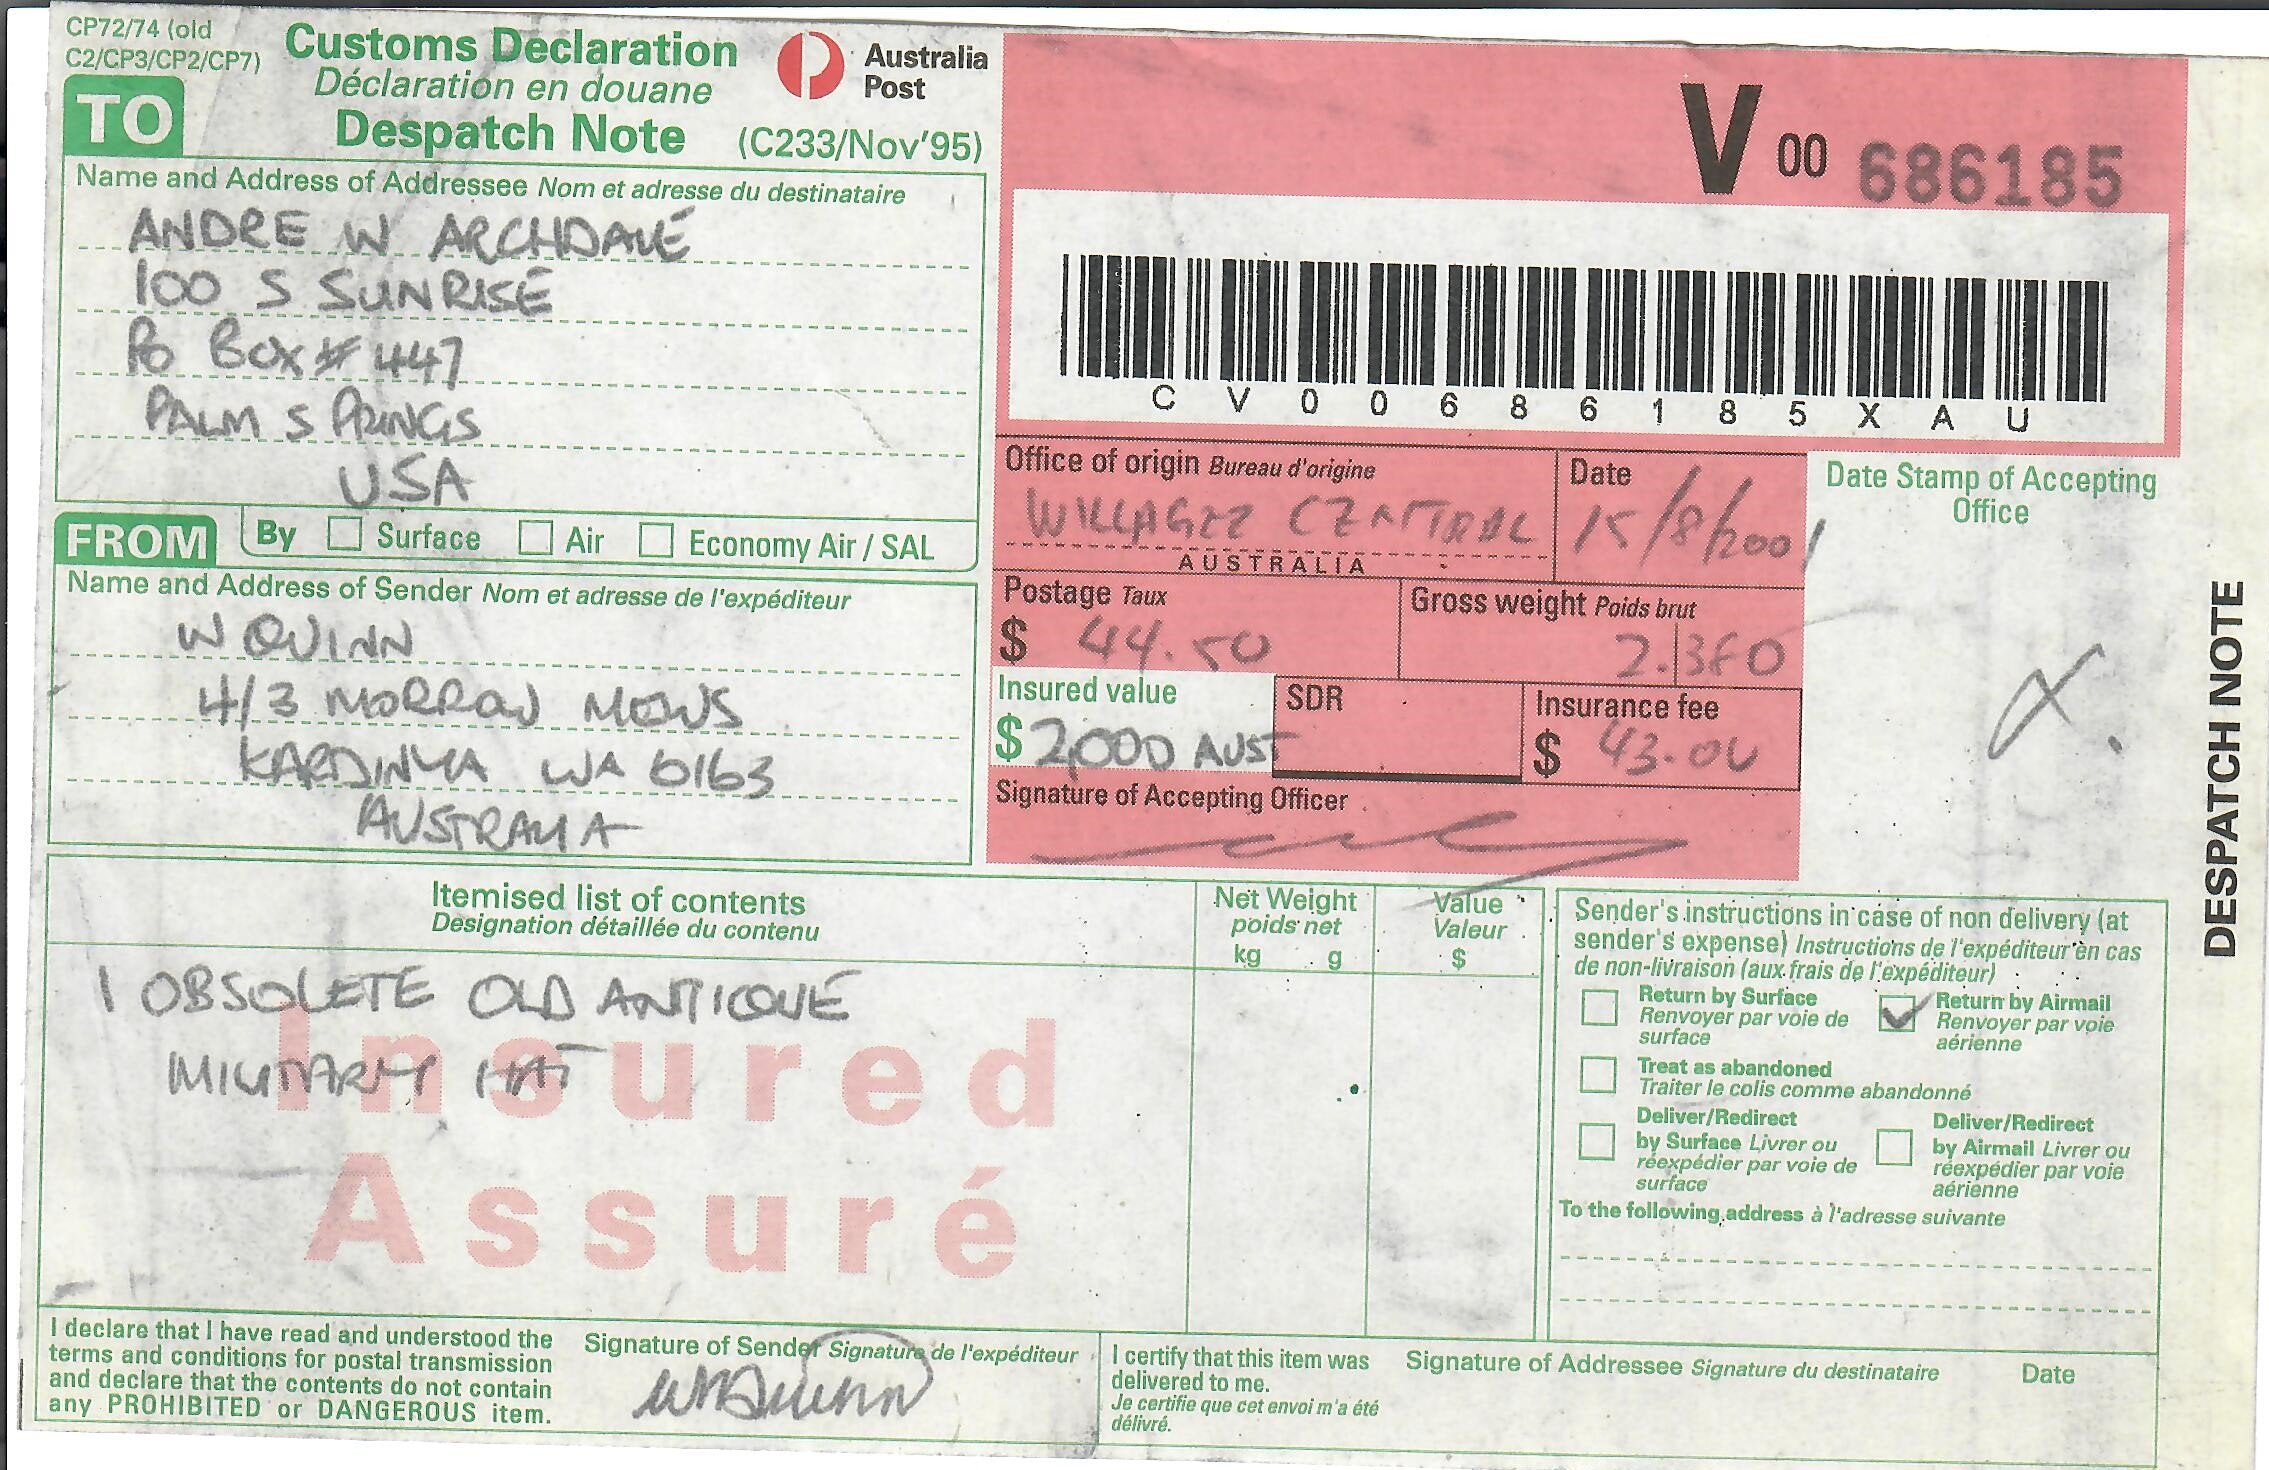 CP72/74 (old
C2/CP3/CP2/CP7)
Customs Declaration
Déclaration en douane
Despatch Note (C233/Nov'95)
Australia
Post
TO
Name and Address of Addressee Nom et adresse du destinataire
ANDRE W ARCHDALE
100 S SUNRISE
PO BOX # 447
PALM SPRINGS
USA
FROM By Surface Air Economy Air / SAL
Name and Address of Sender Nom et adresse de l'expéditeur
W QUINN
4/3 MORROW MEWS
KARDINYA WA 6163
AUSTRALIA
V 00 686185
CV00686185XAU
Office of origin Bureau d'origine
WILLAGEE CENTRAL
AUSTRALIA
Date
15/8/2001
Date Stamp of Accepting
Office
Postage Taux
$ 44.50
Gross weight Poids brut
2.380
Insured value
$ 2,000 AUST
SDR
Insurance fee
$ 43.00
Signature of Accepting Officer
DESPATCH NOTE
Itemised list of contents
Designation détaillée du contenu
Net Weight
poids net
kg g
Value
Valeur
$
1 OBSOLETE OLD ANTIQUE
MILITARY HAT
Insured
Assuré
Sender's instructions in case of non delivery (at
sender's expense) Instructions de l'expéditeur en cas
de non-livraison (aux frais de l'expéditeur)
Return by Surface
Renvoyer par voie de
surface
Return by Airmail
Renvoyer par voie
aérienne
Treat as abandoned
Traiter le colis comme abandonné
Deliver/Redirect
by Surface Livrer ou
réexpédier par voie de
surface
Deliver/Redirect
by Airmail Livrer ou
réexpédier par voie
aérienne
To the following address à l'adresse suivante
I declare that I have read and understood the
terms and conditions for postal transmission
and declare that the contents do not contain
any PROHIBITED or DANGEROUS item.
Signature of Sender Signature de l'expéditeur
WM Quinn
I certify that this item was
delivered to me.
Je certifie que cet envoi m'a été
délivré.
Signature of Addressee Signature du destinataire
Date